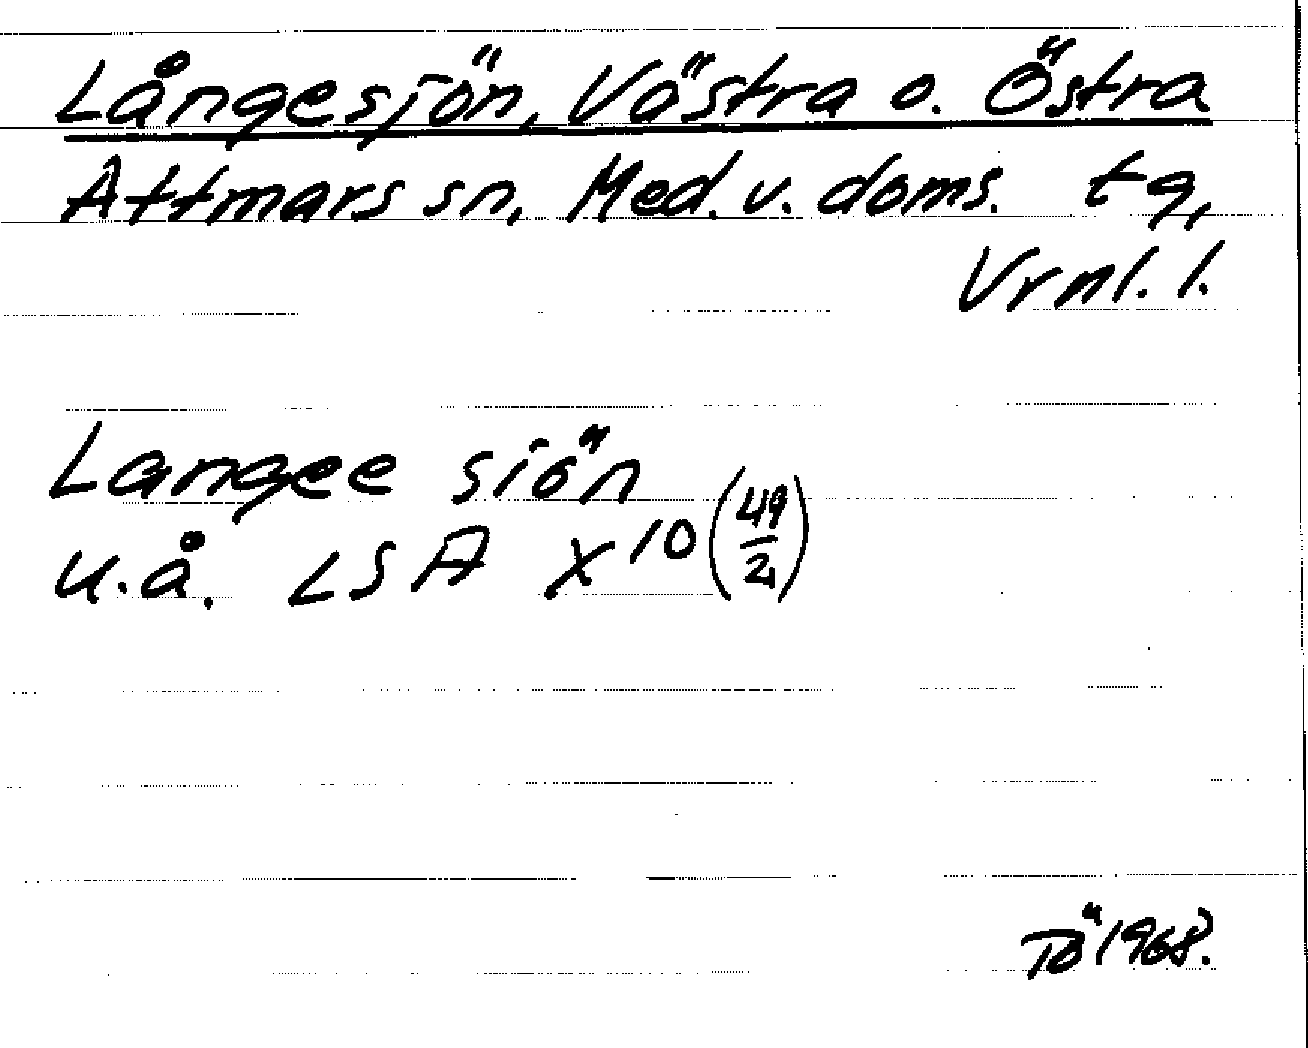 Långesjön, Västra o. Östra
Attmars sn, Med. v. doms. tg,
Vrnl. l.
Langee siön
u.å. LSA X10 (49/2)
Tö 1968.